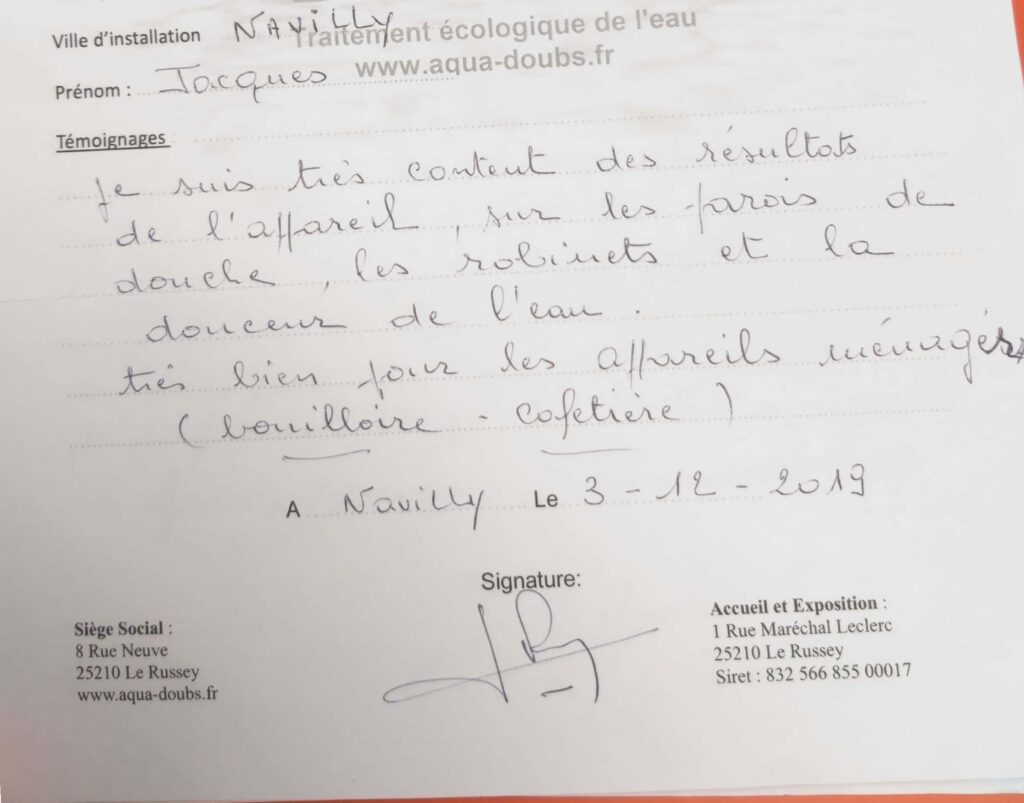 Traitement écologique de l'eau
www.aqua-doubs.fr
Ville d'installation NAVILLY
Prénom : Jacques
Témoignages :
Je suis très content des résultats
de l'appareil, sur les parois de
douche, les robinets et la
douceur de l'eau.
très bien pour les appareils ménagés
(bouilloire - cafetière)
A Navilly Le 3 - 12 - 2019
Signature:
Siège Social :
8 Rue Neuve
25210 Le Russey
www.aqua-doubs.fr
Accueil et Exposition :
1 Rue Maréchal Leclerc
25210 Le Russey
Siret : 832 566 855 00017